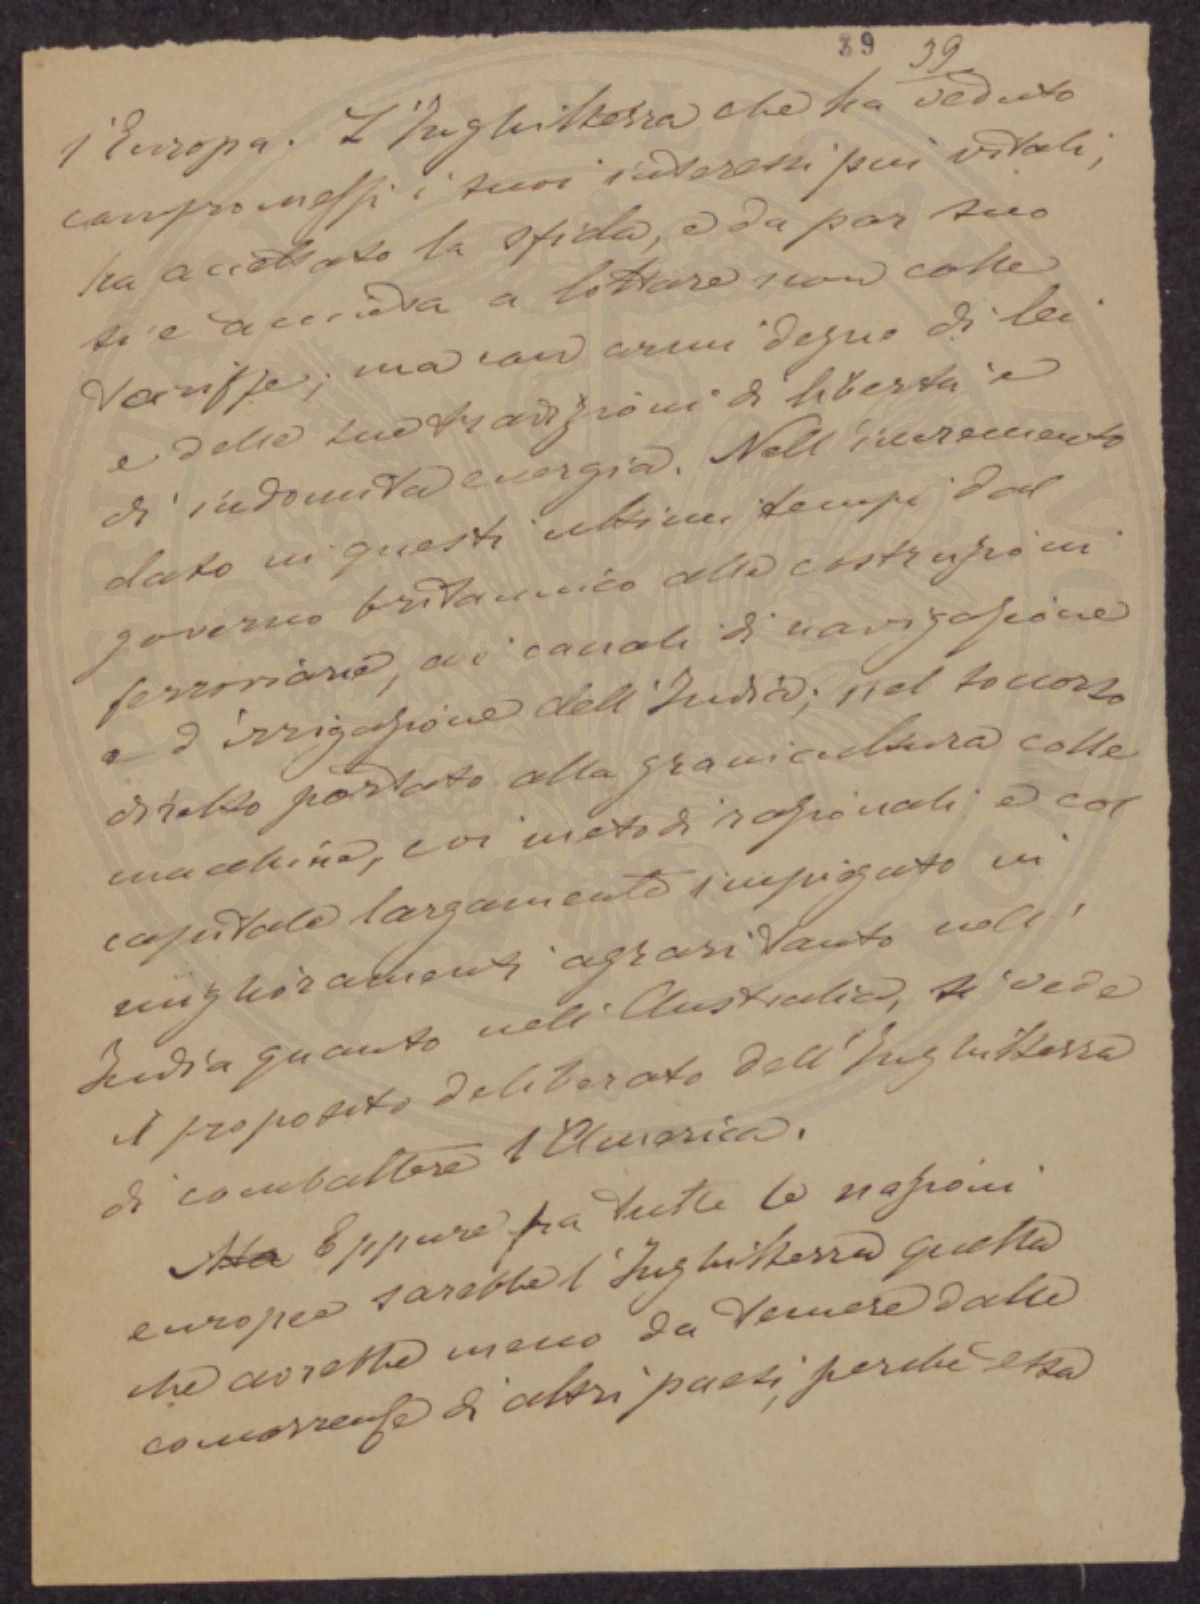 39 39
l'Europa. L'Inghilterra che ha veduto
compromessi i suoi interessi più vitali,
ha accettato la sfida, e da par suo
si è accinta a lottare non colle
tariffe, ma con armi degne di lei
e delle sue tradizioni di libertà e
di indomita energia. Nell'incremento
dato in questi ultimi tempi dal
governo britannico alle costruzioni
ferroviarie, ai canali di navigazione
e d'irrigazione dell'India; nel soccorso
diretto portato alla granicultura colle
macchine, coi metodi razionali e col
capitale largamente impiegato in
miglioramenti agrari tanto nell'
India quanto nell'Australia, si vede
il proposito deliberato dell'Inghilterra
di combattere l'America.
Ma Eppure fra tutte le nazioni
europee sarebbe l'Inghilterra quella
che avrebbe meno da temere dalle
concorrenze di altri paesi, perchè essa